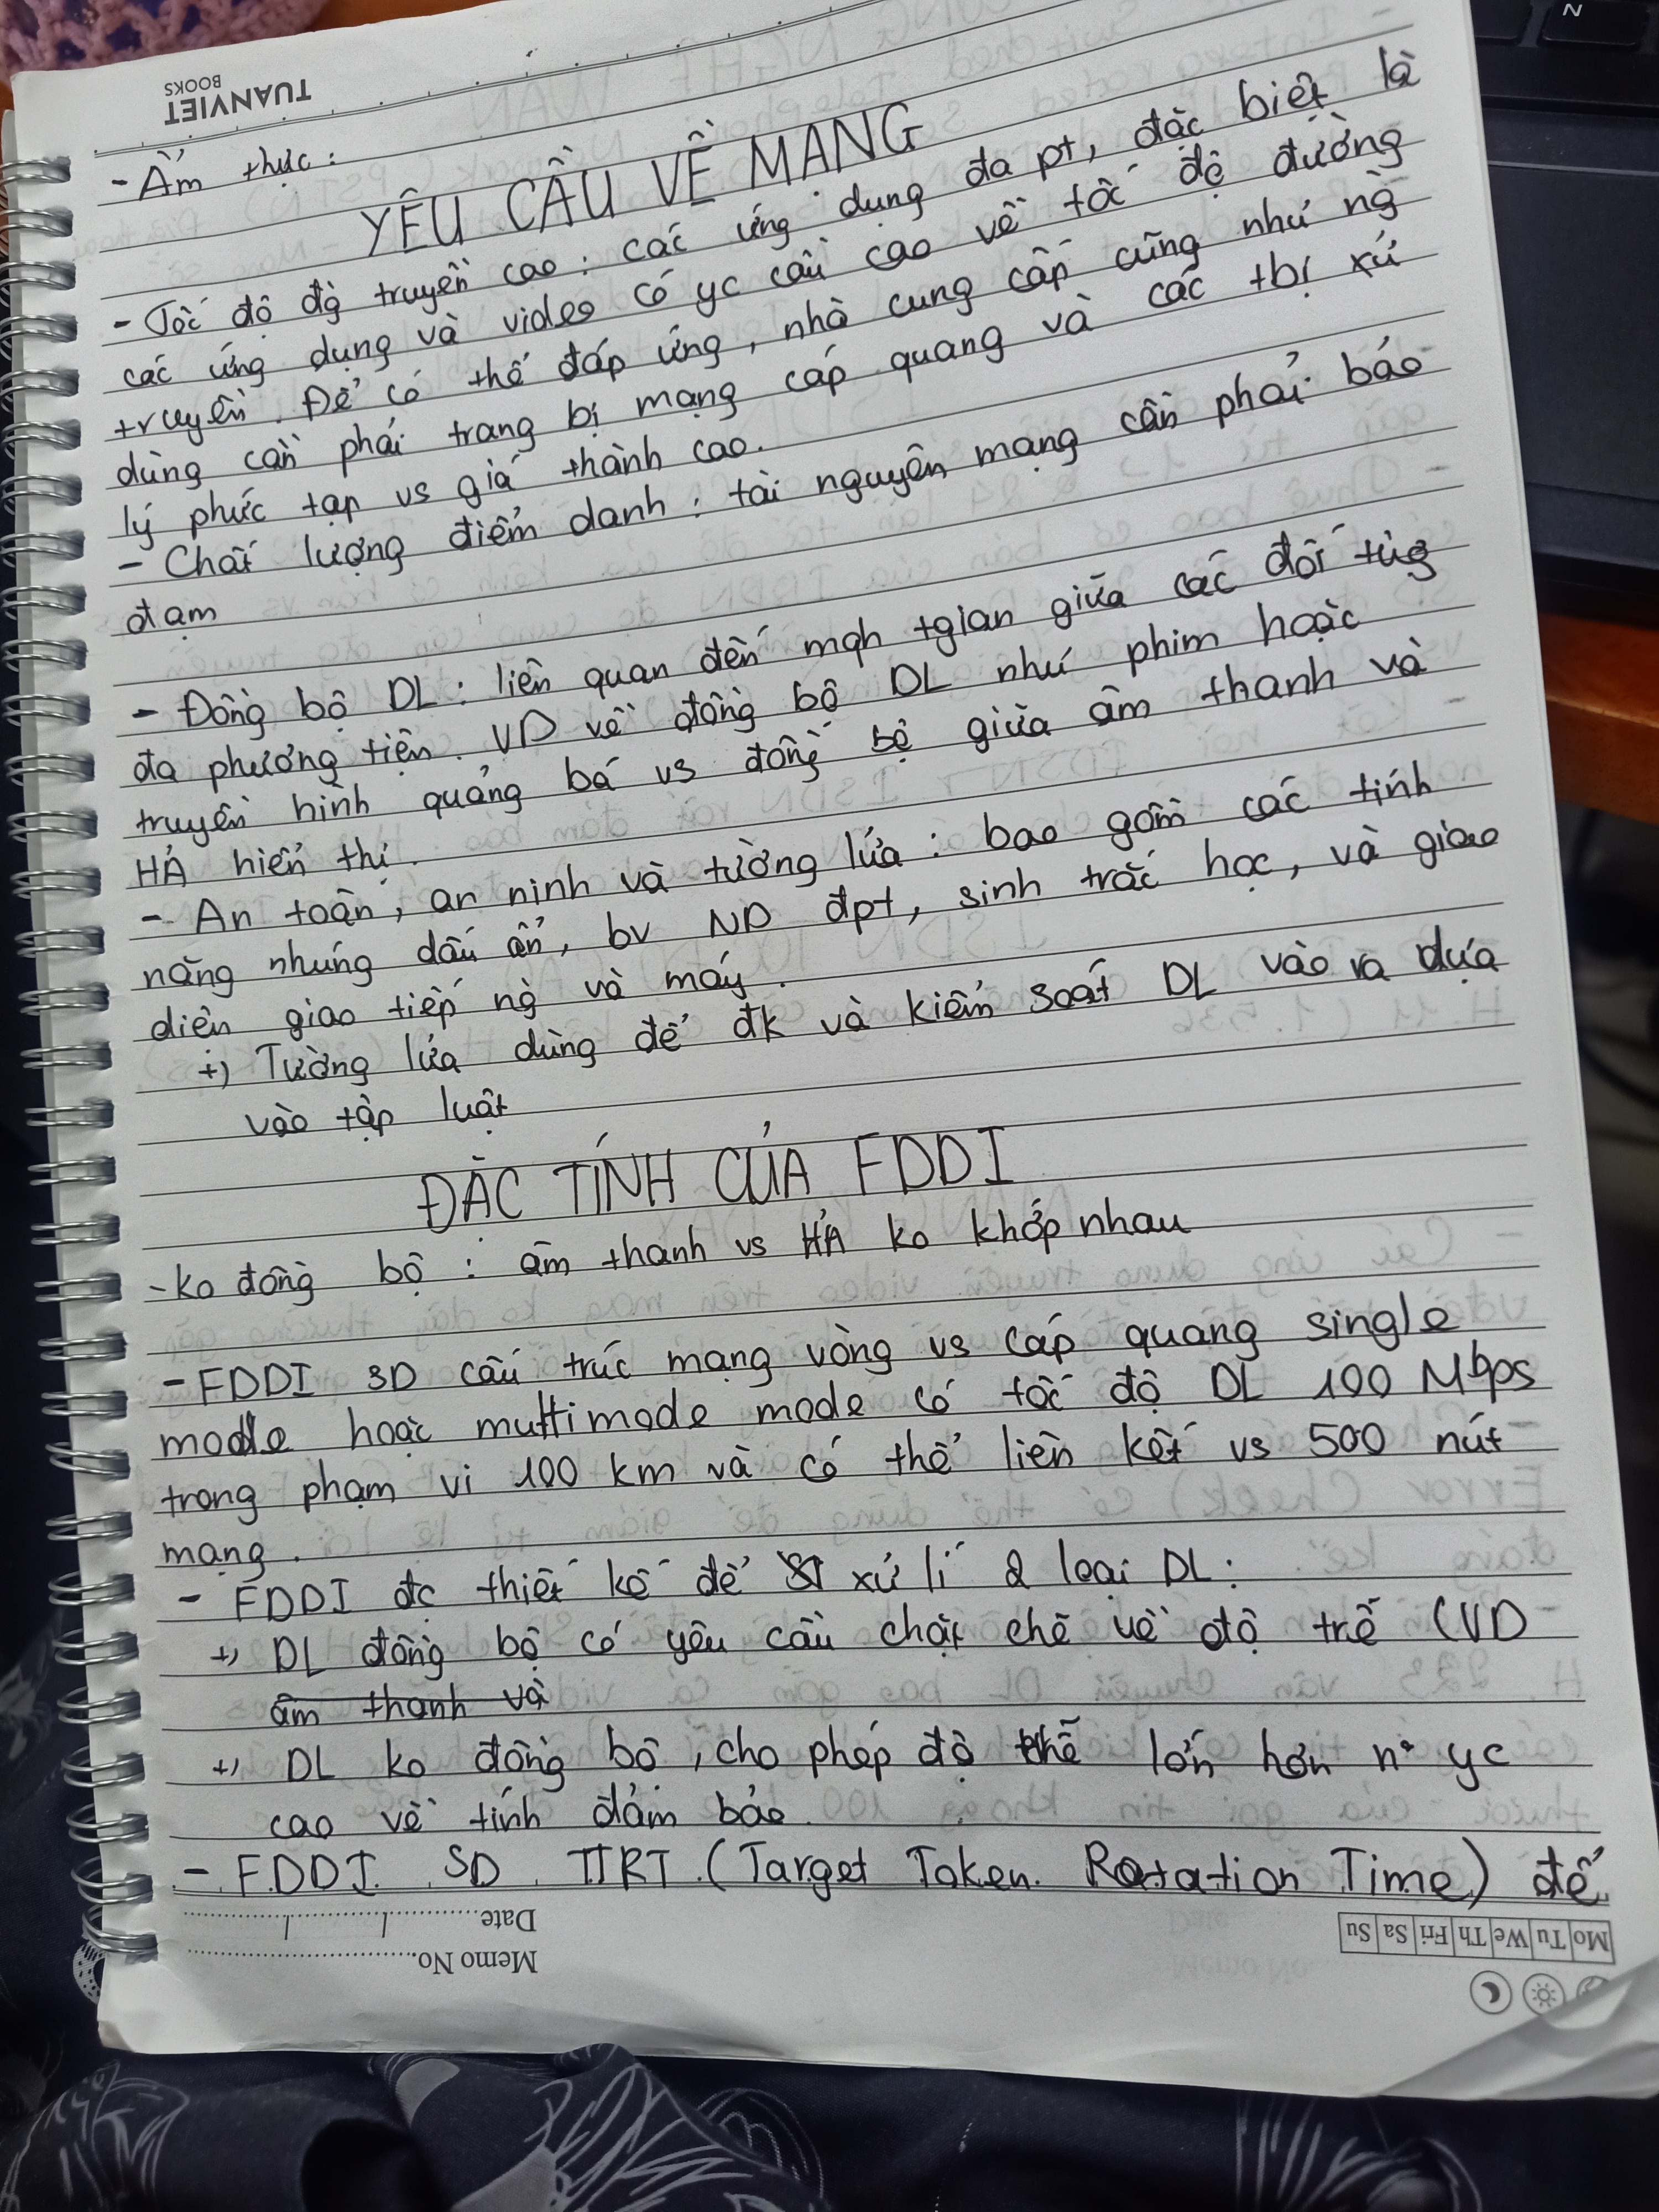 TUANVIET
BOOKS
- Ẩm thực:
YÊU CẦU VỀ MẠNG
- Tốc độ đg truyền cao: các ứng dụng đa pt, đặc biệt là
các ứng dụng và video có yc cầu cao về tốc độ đường
truyền. Để có thể đáp ứng, nhà cung cấp cũng như ng
dùng cần phải trang bị mạng cáp quang và các tbị xử
lý phức tạp vs giá thành cao.
- Chất lượng điểm danh: tài nguyên mạng cần phải bảo
đạm
- Đồng bộ DL: liên quan đến mqh tgian giữa các đối tượg
đa phương tiện. VD về đồng bộ DL như phim hoặc
truyền hình quảng bá vs đồng bộ giữa âm thanh và
HẢ hiển thị.
- An toàn, an ninh và tường lửa: bao gồm các tính
năng nhúng dấu ẩn, bv ND đpt, sinh trắc học, và giao
diện giao tiếp ng và máy.
+) Tường lửa dùng để đk và kiểm soát DL vào ra dựa
vào tập luật
ĐẶC TÍNH CỦA FDDI
- ko đồng bộ: âm thanh vs HẢ ko khớp nhau
- FDDI SD cấu trúc mạng vòng vs cáp quang single
mode hoặc multimode mode có tốc độ DL 100 Mbps
trong phạm vi 100 km và có thể liên kết vs 500 nút
mạng.
- FDDI đc thiết kế để xử lí 2 loại DL:
+) DL đồng bộ có yêu cầu chặt chẽ về độ trễ (VD
âm thanh và
+) DL ko đồng bộ, cho phép độ trễ lớn hơn n° yc
cao về tính đảm bảo.
- FDDI SD TTRT (Target Token Rotation Time) để
Date
Memo No.
Mo Tu We Th Fri Sa Su